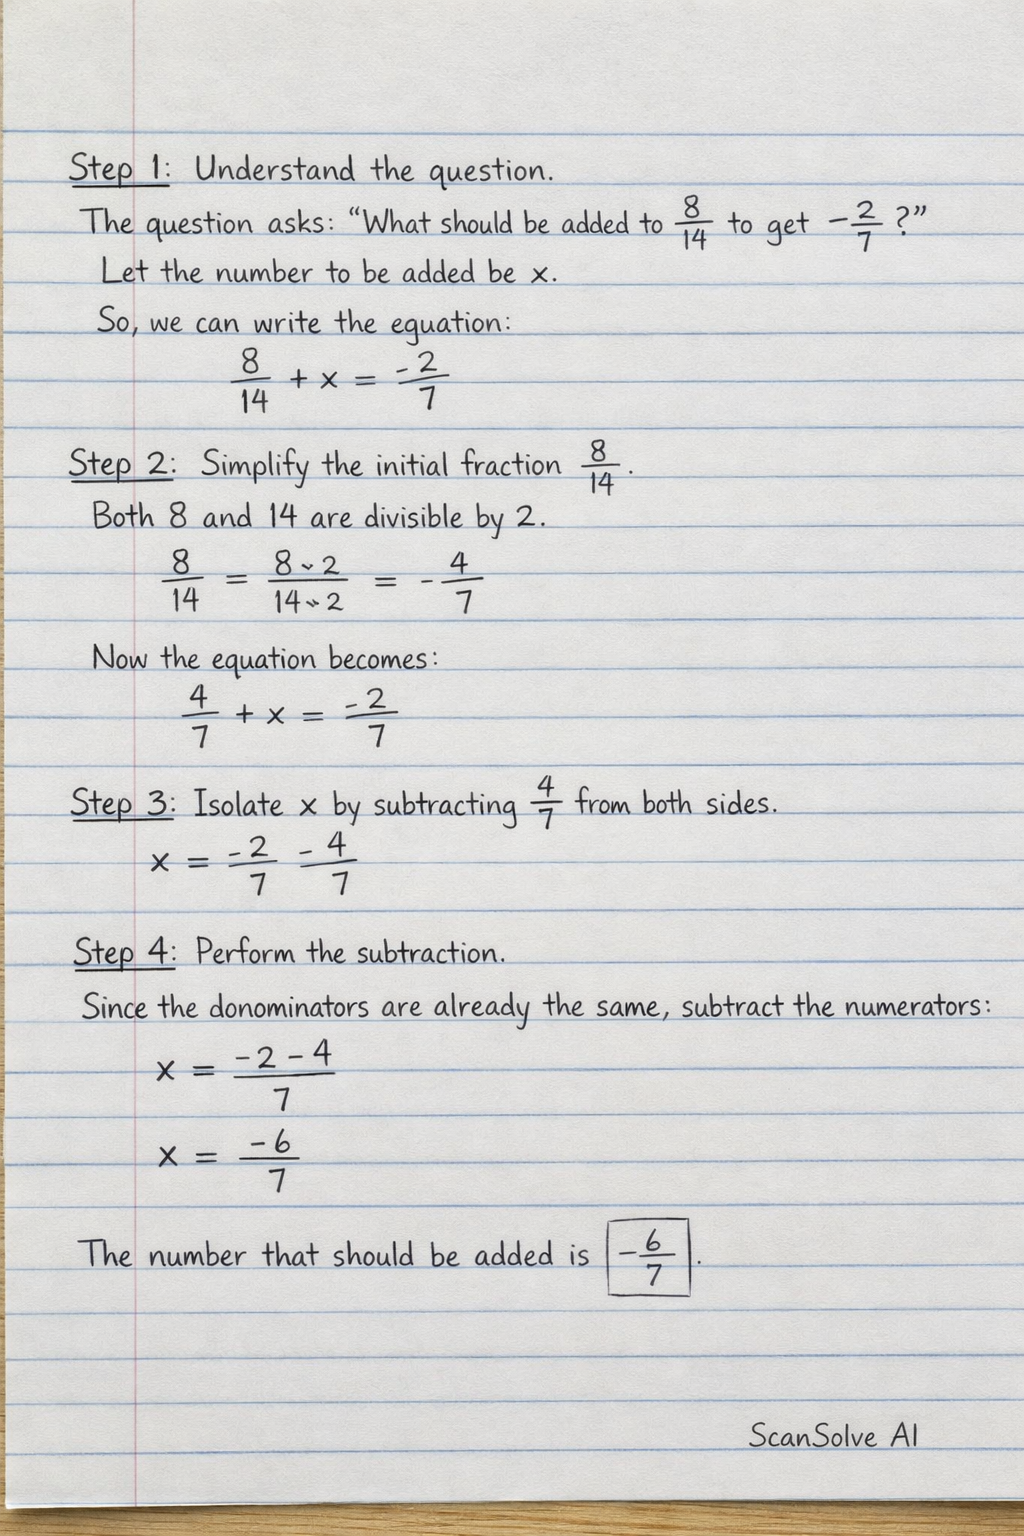 Step 1: Understand the question.
The question asks: “What should be added to 8/14 to get -2/7 ?”
Let the number to be added be x.
So, we can write the equation:
8/14 + x = -2/7
Step 2: Simplify the initial fraction 8/14.
Both 8 and 14 are divisible by 2.
8/14 = 8 ÷ 2/14 ÷ 2 = -4/7
Now the equation becomes:
4/7 + x = -2/7
Step 3: Isolate x by subtracting 4/7 from both sides.
x = -2/7 - 4/7
Step 4: Perform the subtraction.
Since the donominators are already the same, subtract the numerators:
x = -2 - 4/7
x = -6/7
The number that should be added is -6/7.
ScanSolve AI